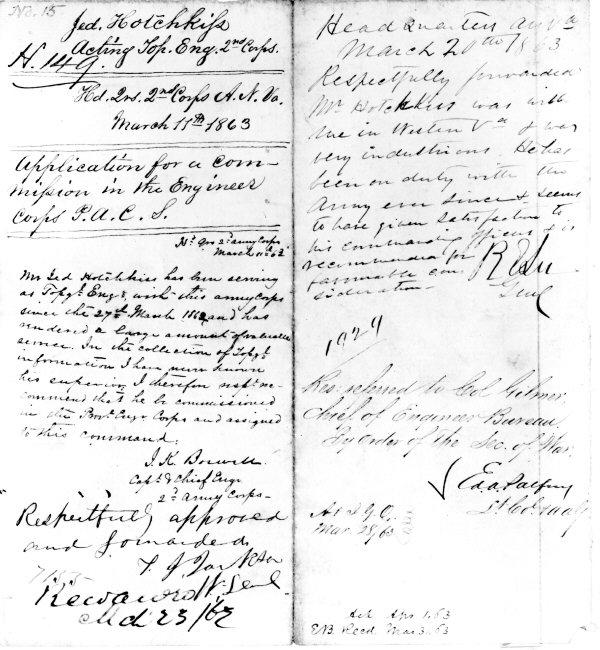 No. 15
Jed. Hotchkiss
Acting Top. Eng. 2nd Corps.
H. 149.
Hd. Qrs. 2nd Corps A. N. Va.
March 11th 1863
Application for a com-
mission in the Engineer
Corps P. A. C. S.
Hd. Qrs 2d Army Corps
March 11th 63
Mr Jed Hotchkiss has been serving
as Topgl. Engr. with this army corps
since the 27th March 1862, and has
rendered a large amount of valuable
service. In the collection of Topgl.
information I have never known
his superior, I therefore respt. re-
commend that he be commissioned
in the Provl. Engr Corps and assigned
to this command.
J. K. Boswell
Capt. & Chief Engr
2d Army Corps
Respectfully approved
and forwarded.
T. J. Jackson
Lt. Genl.
Recd
Md 23/63
Head Quarters
March 20th 1863
Respectfully forwarded
Mr Hotchkiss was with
me in Western Va & was
very industrious. He has
been on duty with the
Army ever since & seems
to have given satisfaction to
his commanding officers & is
recommended for
favourable con-
sideration
R E Lee
Genl
1929
Res. referred to Col Gilmer,
Chief of Engineer Bureau,
By order of the Sec. of War,
Lt. Col
A. & I. G. O.
Mar. 28, 63
Apr 1. 63